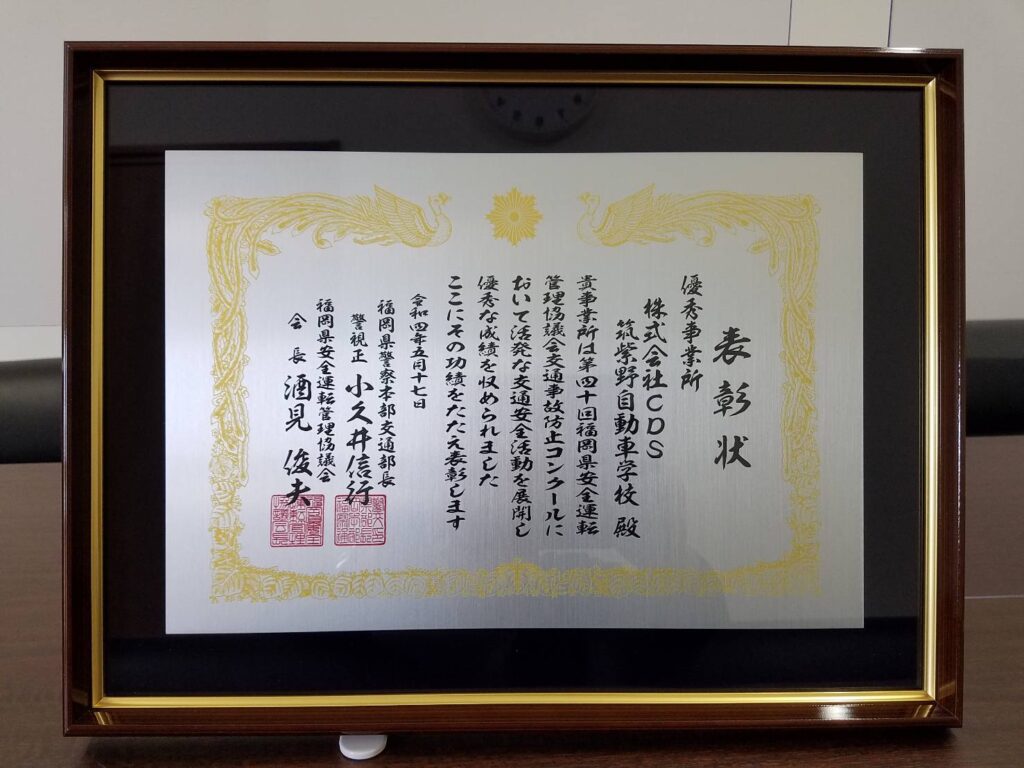 表彰状
優秀事業所
株式会社CDS
筑紫野自動車学校 殿
貴事業所は第四十回福岡県安全運転
管理協議会交通事故防止コンクールに
おいて活発な交通安全活動を展開し
優秀な成績を収められました
ここにその功績をたたえ表彰します
令和四年五月十七日
福岡県警察本部交通部長
警視正 小久井信行
福岡県安全運転管理協議会
会長 酒見俊夫